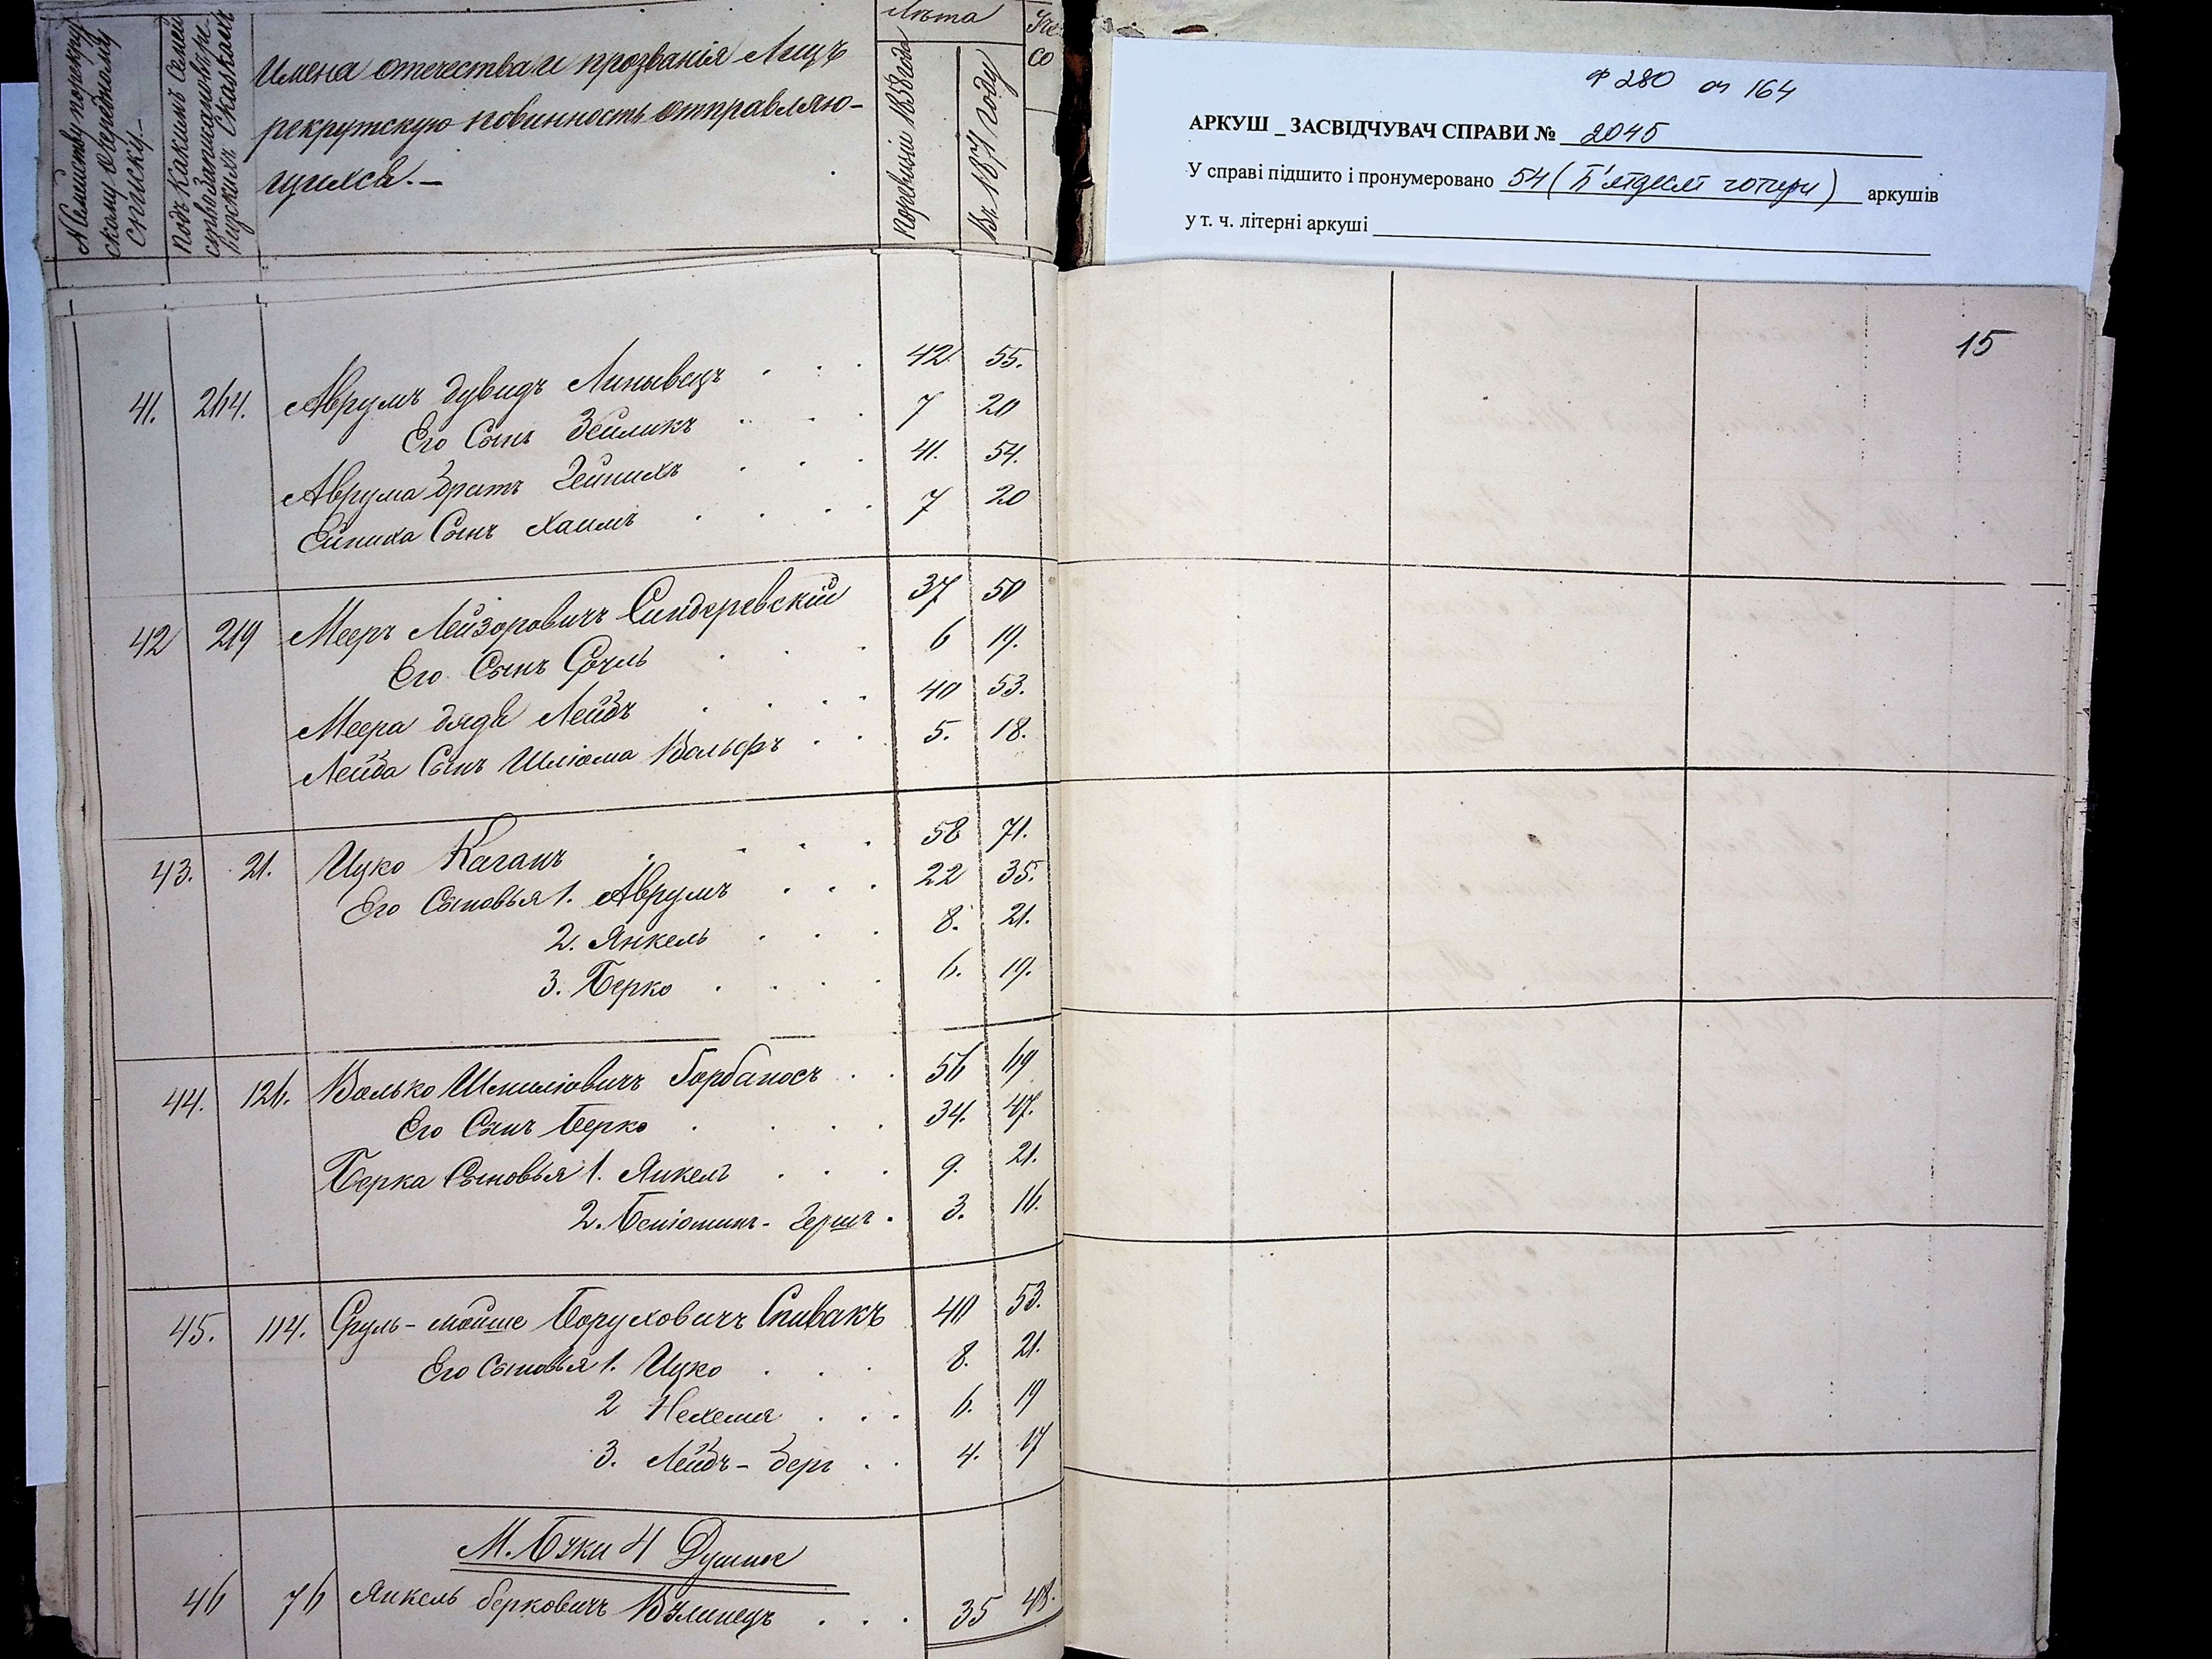 № семейству по рекрутскому очередному списку.-
Подъ какимъ семейством записаны въ ревизскихъ сказкахъ
Имена отечества и прозванія Лицъ
рекрутскую повинность отправляю-
щихся.-
Лѣта
По ревизіи 1858 года
Въ 1871 году
Ф 280 оп 164
АРКУШ _ ЗАСВІДЧУВАЧ СПРАВИ № 2045
У справі підшито і пронумеровано 54 (П'ятдесят чотири) аркушів
у т. ч. літерні аркуші
15
41. 264. Аврумъ дувидъ Липывецъ . . . 42 55.
Его Сынъ Зейликъ . . . 7 20
Аврума братъ Гейнихъ . . . 41. 54.
Ейниха Сынъ Хаимъ . . . . 7 20
42 219 Мееръ Лейзоровичъ Синдеревскій 37 50
Его Сынъ Сруль . . . 6 19.
Меера дядя Лейбъ . . . . 40 53.
Лейба Сынъ Шліома Вольфъ . . 5. 18.
43. 21. Ицко Каганъ . . . . 58 71.
Его Сыновья 1. Аврумъ . . . 22 35.
2. Янкель . . . 8. 21.
3. Берко . . . . 6. 19.
44. 126. Волько Шмиліовичъ Горбаносъ . . 56 69
Его Сынъ Берко . . . . 34. 47.
Берка Сыновья 1. Янкель . . . 9. 21.
2. Беніоминъ - Гершъ . 3. 16.
45. 114. Сруль - мойше Боруховичъ Спивакъ 40 53.
Его Сыновья 1. Ицко . . . 8. 21.
2 Нехемія . . . 6. 19
3. Лейбъ - Беръ . . 4. 17
М. Бѣки 4 Душное
46 76 Янкель берковичъ Вѣлинецъ . . . 35 48.